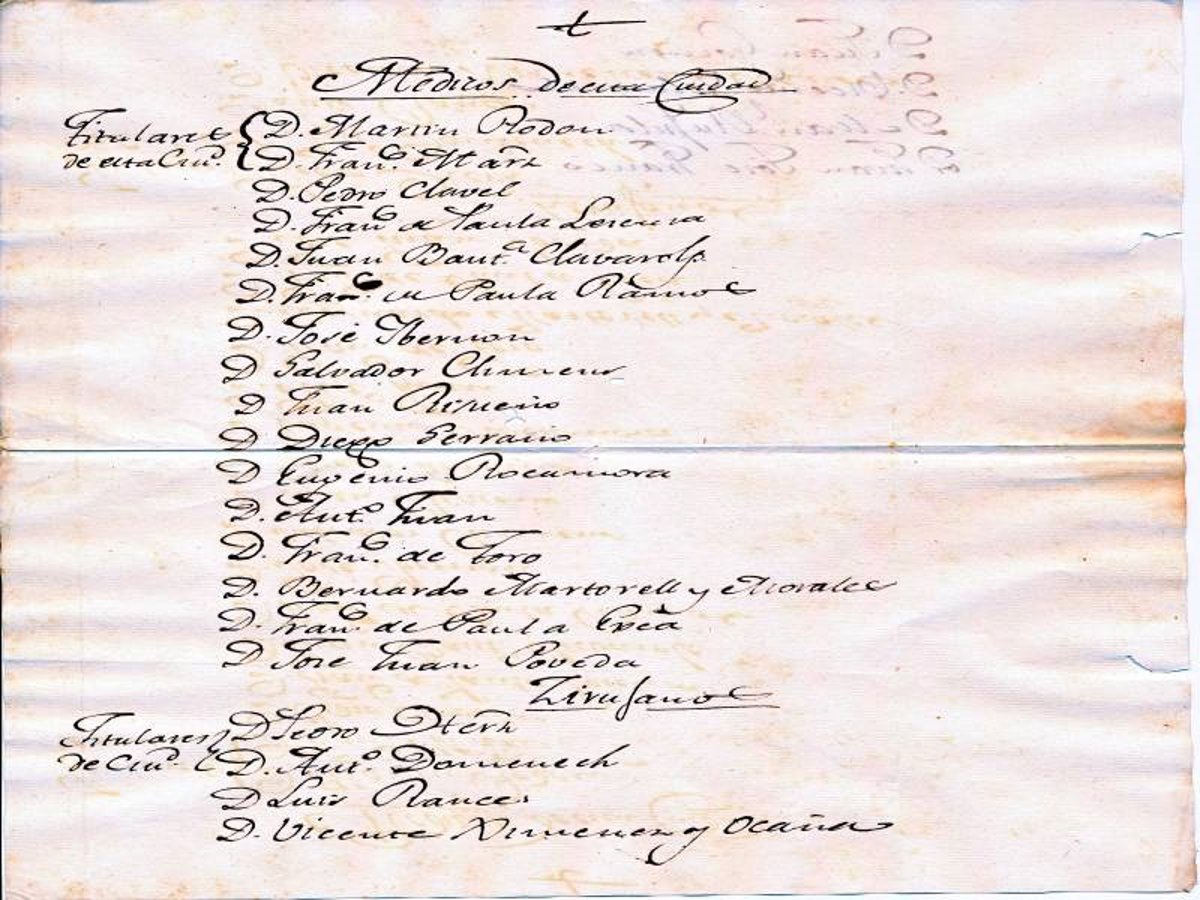 Medicos de esta Ciudad
Titulares { D. Martin Rodon
de esta Ciud. { D. Franco. Marin
D. Pedro Clavel
D. Franco de Paula Lescura
D. Juan Baut.a Clavarols
D. Franco. de Paula Ramos
D. José Ybernon
D Salvador Climens
D Juan Risueño
D Diego Serrano
D Eugenio Rocamora
D. Anto. Juan
D. Franco. de Toro
D. Bernardo Martorell y Morales
D. Franco. de Paula Egea
D José Juan Poveda
Zirujanos
Titulares } D Pedro
de Ciud. { D. Anto. Domenech
D Luis Rances
D. Vicente Ximenez y Ocaña